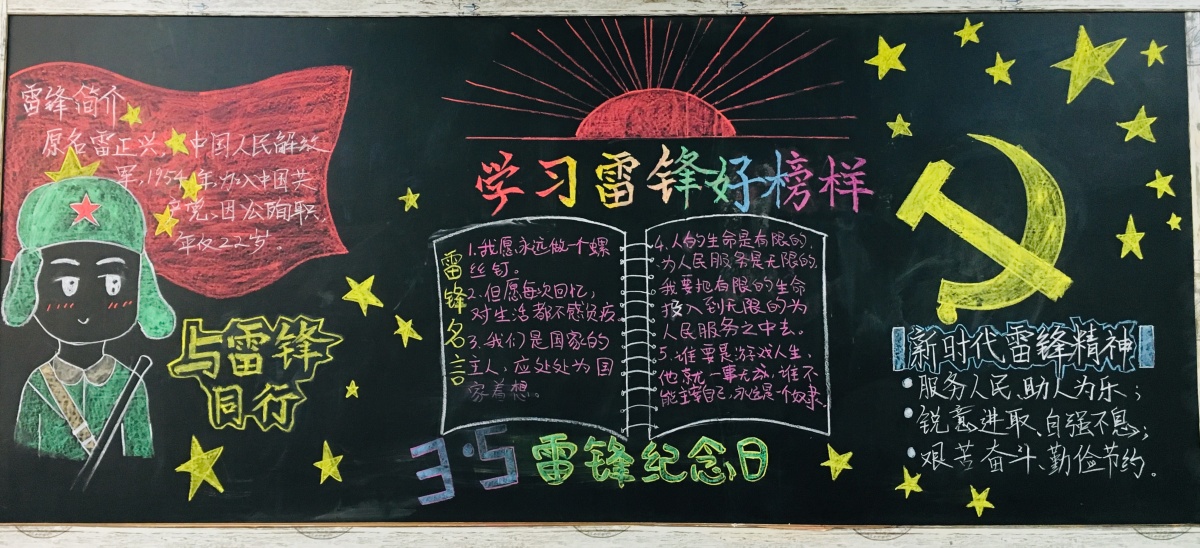 雷锋简介
原名雷正兴,中国人民解放
军,1954年加入中国共
产党、因公殉职,
年仅22岁。
与雷锋
同行
学习雷锋好榜样
雷锋名言
1.我愿永远做一个螺
丝钉。
2.但愿每次回忆,
对生活都不感负疚
3.我们是国家的
主人,应处处为国
家着想。
4.人的生命是有限的.
为人民服务是无限的
我要把有限的生命
投入到无限的为
人民服务之中去。
5.谁要是游戏人生,
他就一事无成,谁不
能主宰自己,永远是一个奴隶
3·5雷锋纪念日
新时代雷锋精神
服务人民、助人为乐;
锐意进取、自强不息;
艰苦奋斗、勤俭节约。